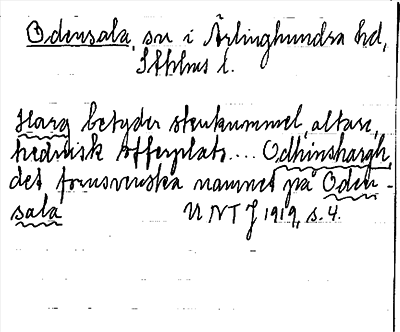 Odensala, sn i Ärlinghundra hd,
Sthlms l.
Harg betyder stenkummel, altare,
hednisk offerplats.... Odhinshargh,
det fornsvenska namnet på Oden-
sala UNT J 1919, s. 4.